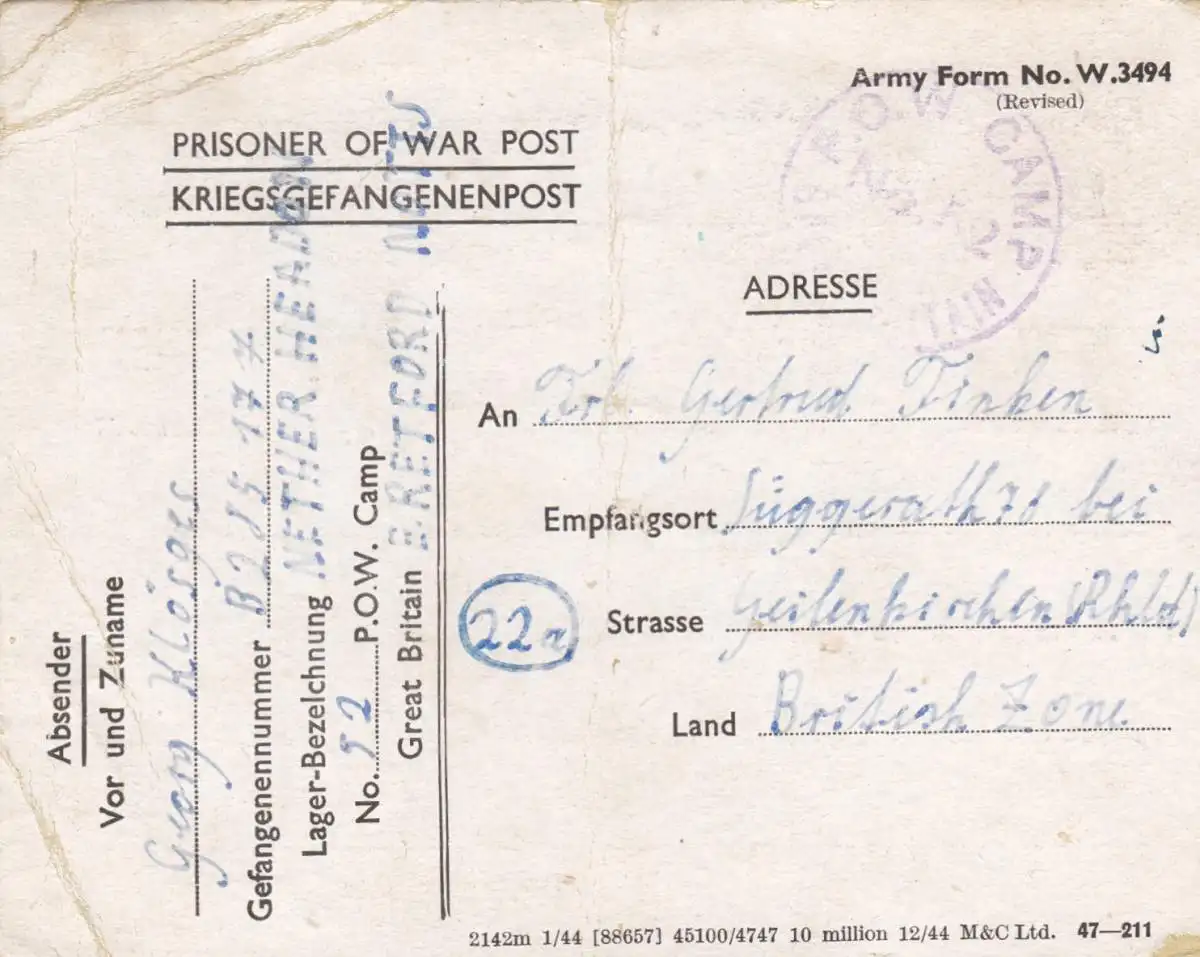 Army Form No. W.3494
(Revised)
PRISONER OF WAR POST
KRIEGSGEFANGENENPOST
P.O.W CAMP
TAIN
ADRESSE
An Frl. Gertrud Finken
Empfangsort Süggerath 76 bei
Strasse Geilenkirchen (Rhld)
22a
Land British Zone
Absender
Vor und Zuname
Georg Klösges
Gefangenennummer
Lager-Bezeichnung NETHER HEADON
No. 52 P.O.W. Camp
Great Britain RETFORD NOTTS
2142m 1/44 [88657] 45100/4747 10 million 12/44 M&C Ltd. 47—211